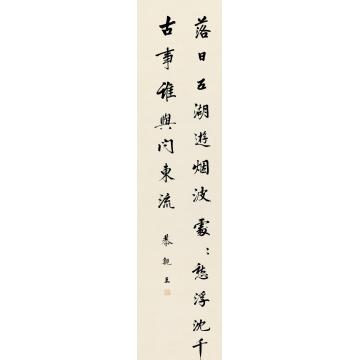 落日五湖遊烟波處〻愁浮沈千
古事誰與问東流
恭親王